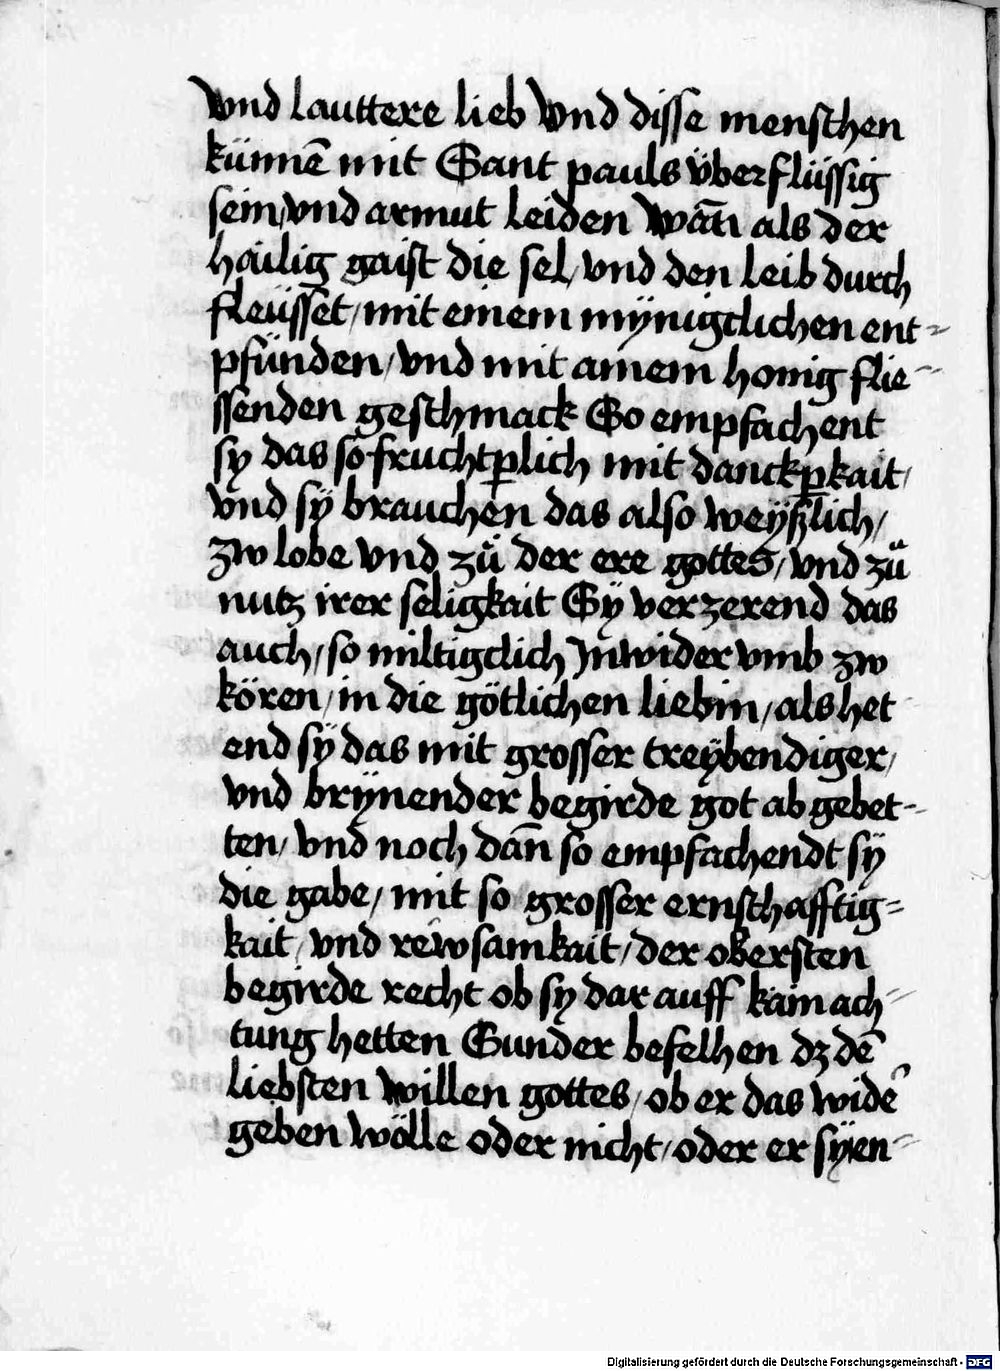 vnd lauttere lieb Vnd disse menschen
künnē mit Sant pauls überflüssig
sein/vnd armut leiden Wān als der
hailig gaist die sel/vnd den leib durch
fleüsset/mit einem mynigclichen ent-
pfünden/vnd mit ainem honig flie-
ssenden geschmack So empfachent
sy das so fruchtp̱lich mit danckp̱kait/
vnd sÿ brauchen das also weÿßlich/
zw lobe vnd zů der ere gottes/vnd zů
nutz irer seligkait Sÿ verzerend das
auch/so miltigclich Jnwider vmb zw
kören/in die götlichen liebin/als het
end sÿ das mit grosser treÿbendiger/
vnd brÿnender begirde got ab gebet-
ten/vnd noch dān so empfachendt sÿ
die gabe/mit so grosser ernschafftig-
kait/vnd rewsamkait/der obersten
begirde recht ob sy dar auff kain ach-
tung hetten Sunder befelhen dz dē
liebsten willen gottes/ob er das widē
geben wölle oder nicht/oder er sÿ en-
Digitalisierung gefördert durch die Deutsche Forschungsgemeinschaft - DFG